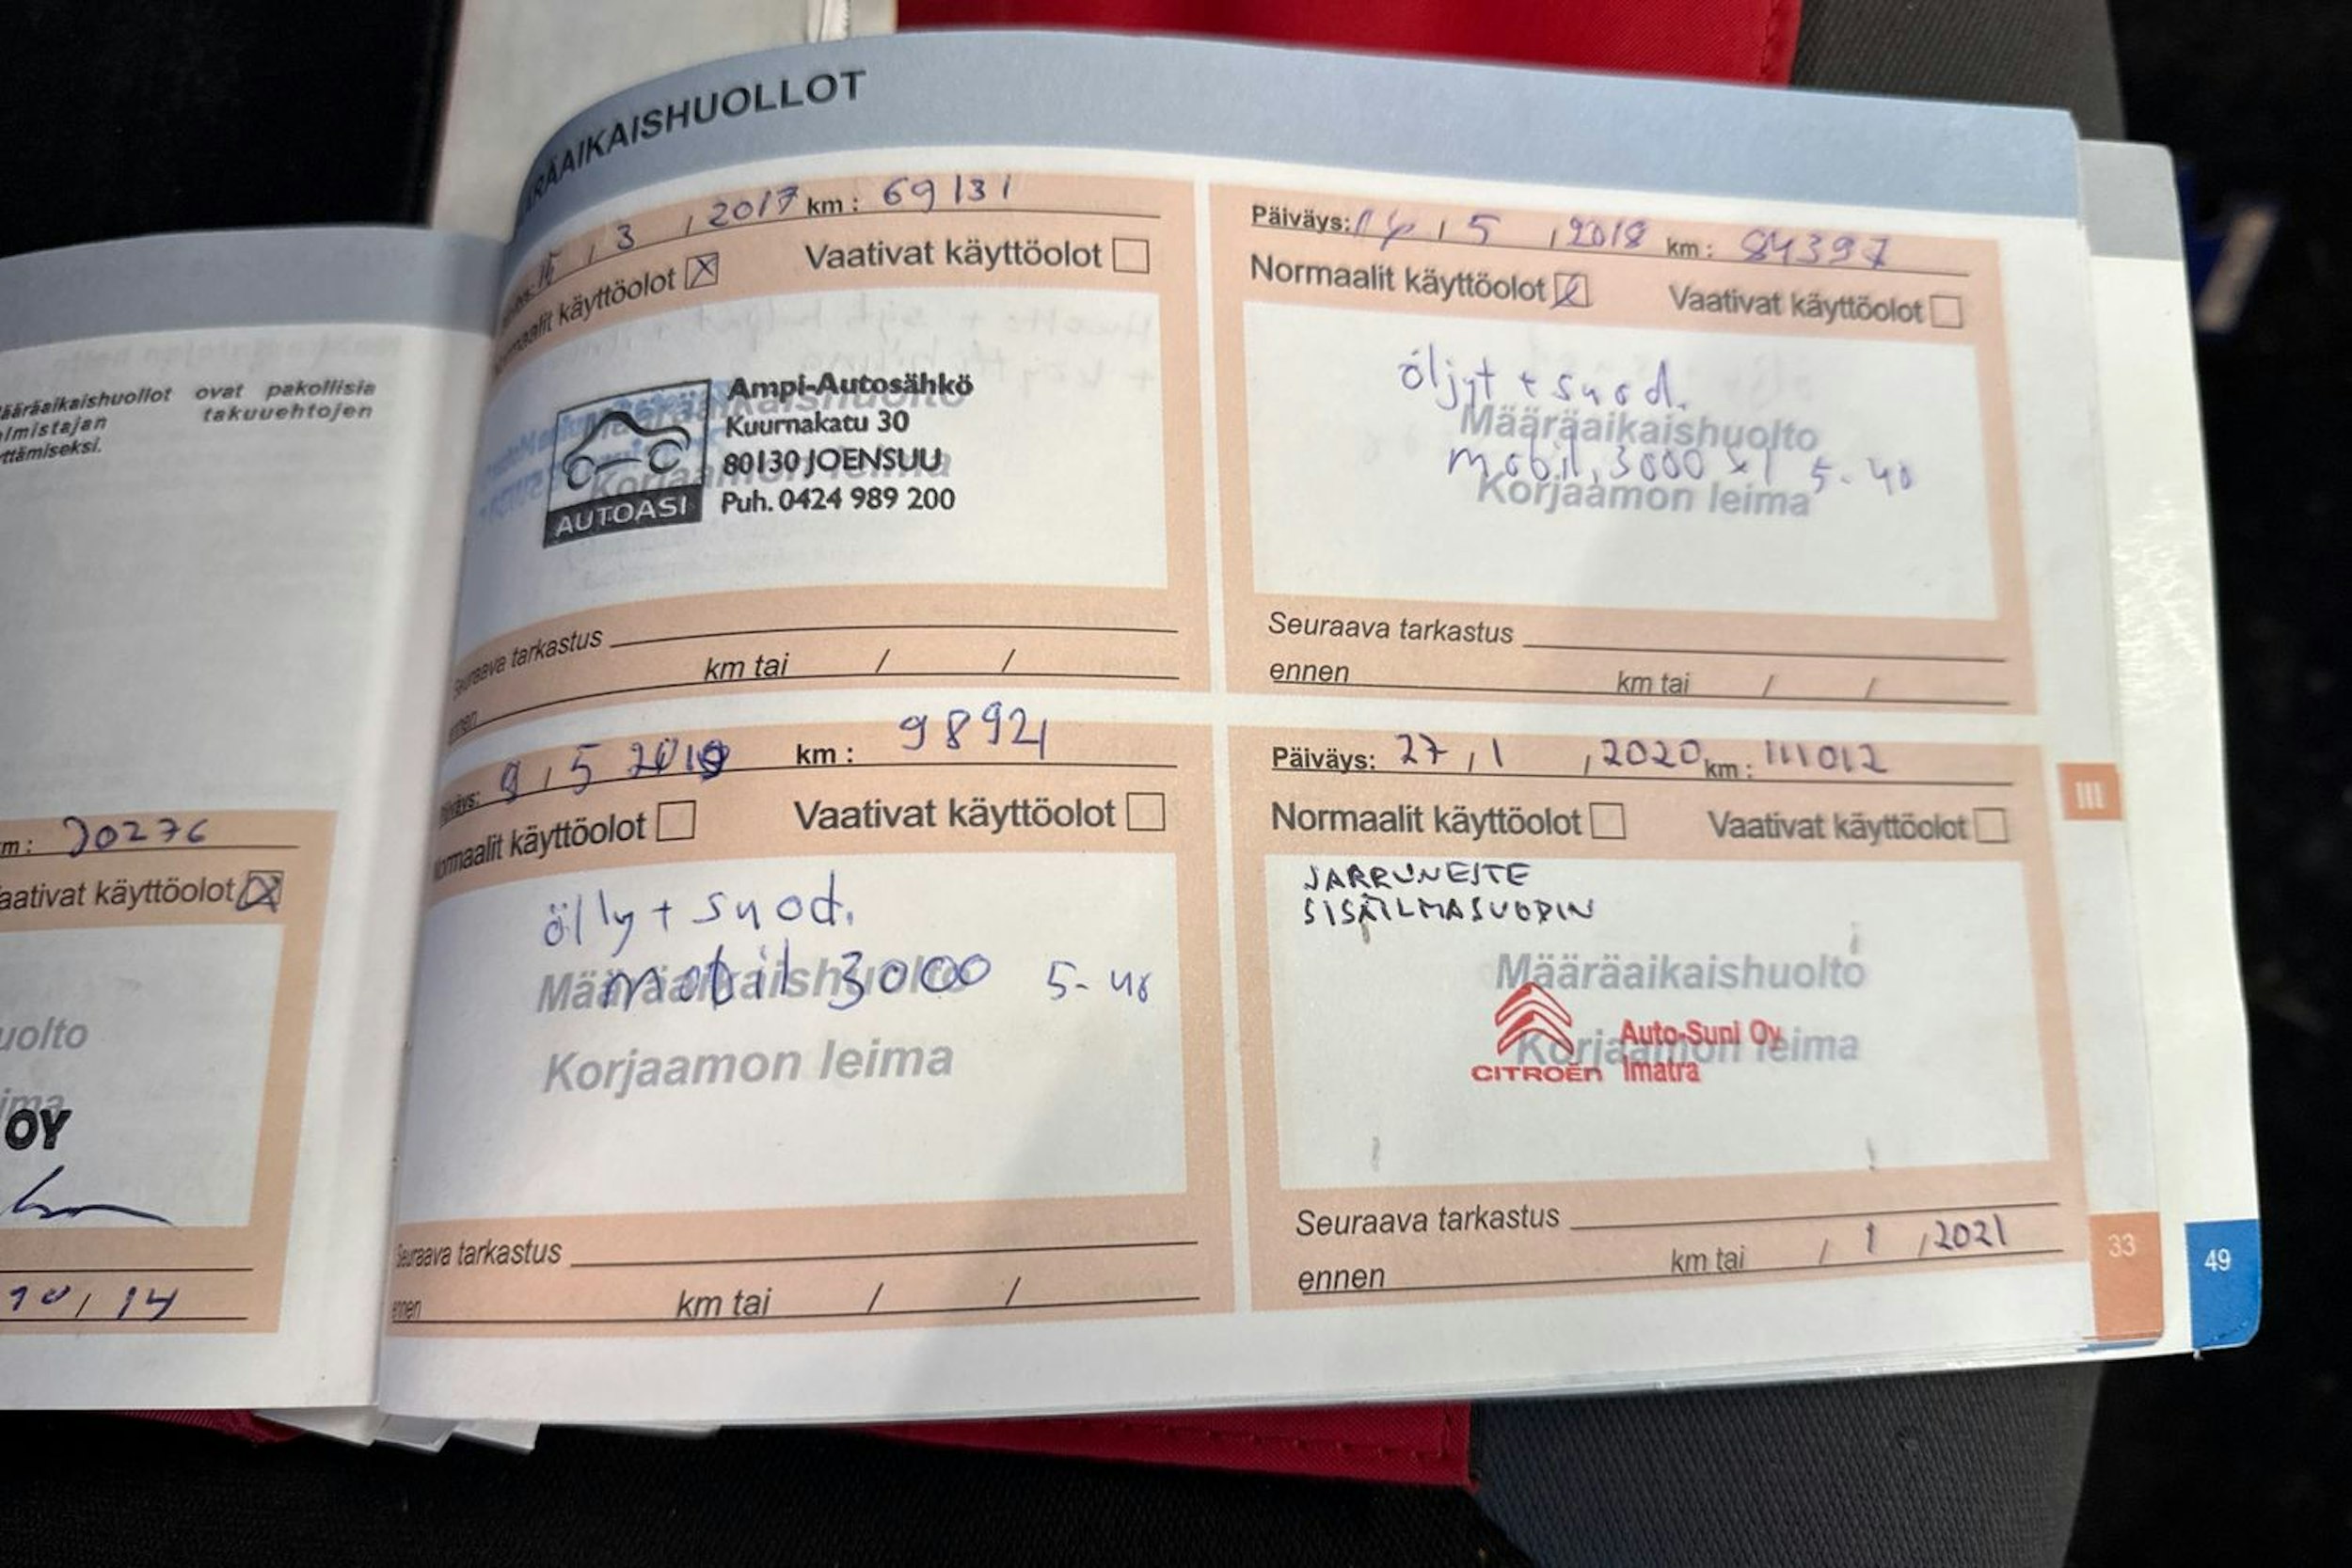 ääräaikaishuollot ovat pakollisia
almistajan takuuehtojen
yttämiseksi.
m: 20276
aativat käyttöolot
uolto
ima
OY
10/14
ÄRÄAIKAISHUOLLOT
15/3/2017 km: 69131
ormaalit käyttöolot Vaativat käyttöolot
Määräaikaishuolto
Korjaamon leima
AUTOASI
Ampi-Autosähkö
Kuurnakatu 30
80130 JOENSUU
Puh. 0424 989 200
Seuraava tarkastus
ennen km tai / /
Päiväys: 14/5/2018 km: 84397
Normaalit käyttöolot Vaativat käyttöolot
öljyt + suod.
Määräaikaishuolto
mobil 3000 x1 5-40
Korjaamon leima
Seuraava tarkastus
ennen km tai / /
Päiväys: 9/5 2019 km: 98921
Normaalit käyttöolot Vaativat käyttöolot
ölly + suod.
Määräaikaishuolto
mobil 3000 5-40
Korjaamon leima
Seuraava tarkastus
ennen km tai / /
Päiväys: 27/1/2020 km: 111012
Normaalit käyttöolot Vaativat käyttöolot
JARRUNESTE
SISÄILMASUODIN
Määräaikaishuolto
Korjaamon leima
CITROËN
Auto-Suni Oy
Imatra
Seuraava tarkastus
ennen km tai / 1 / 2021
III
33
49